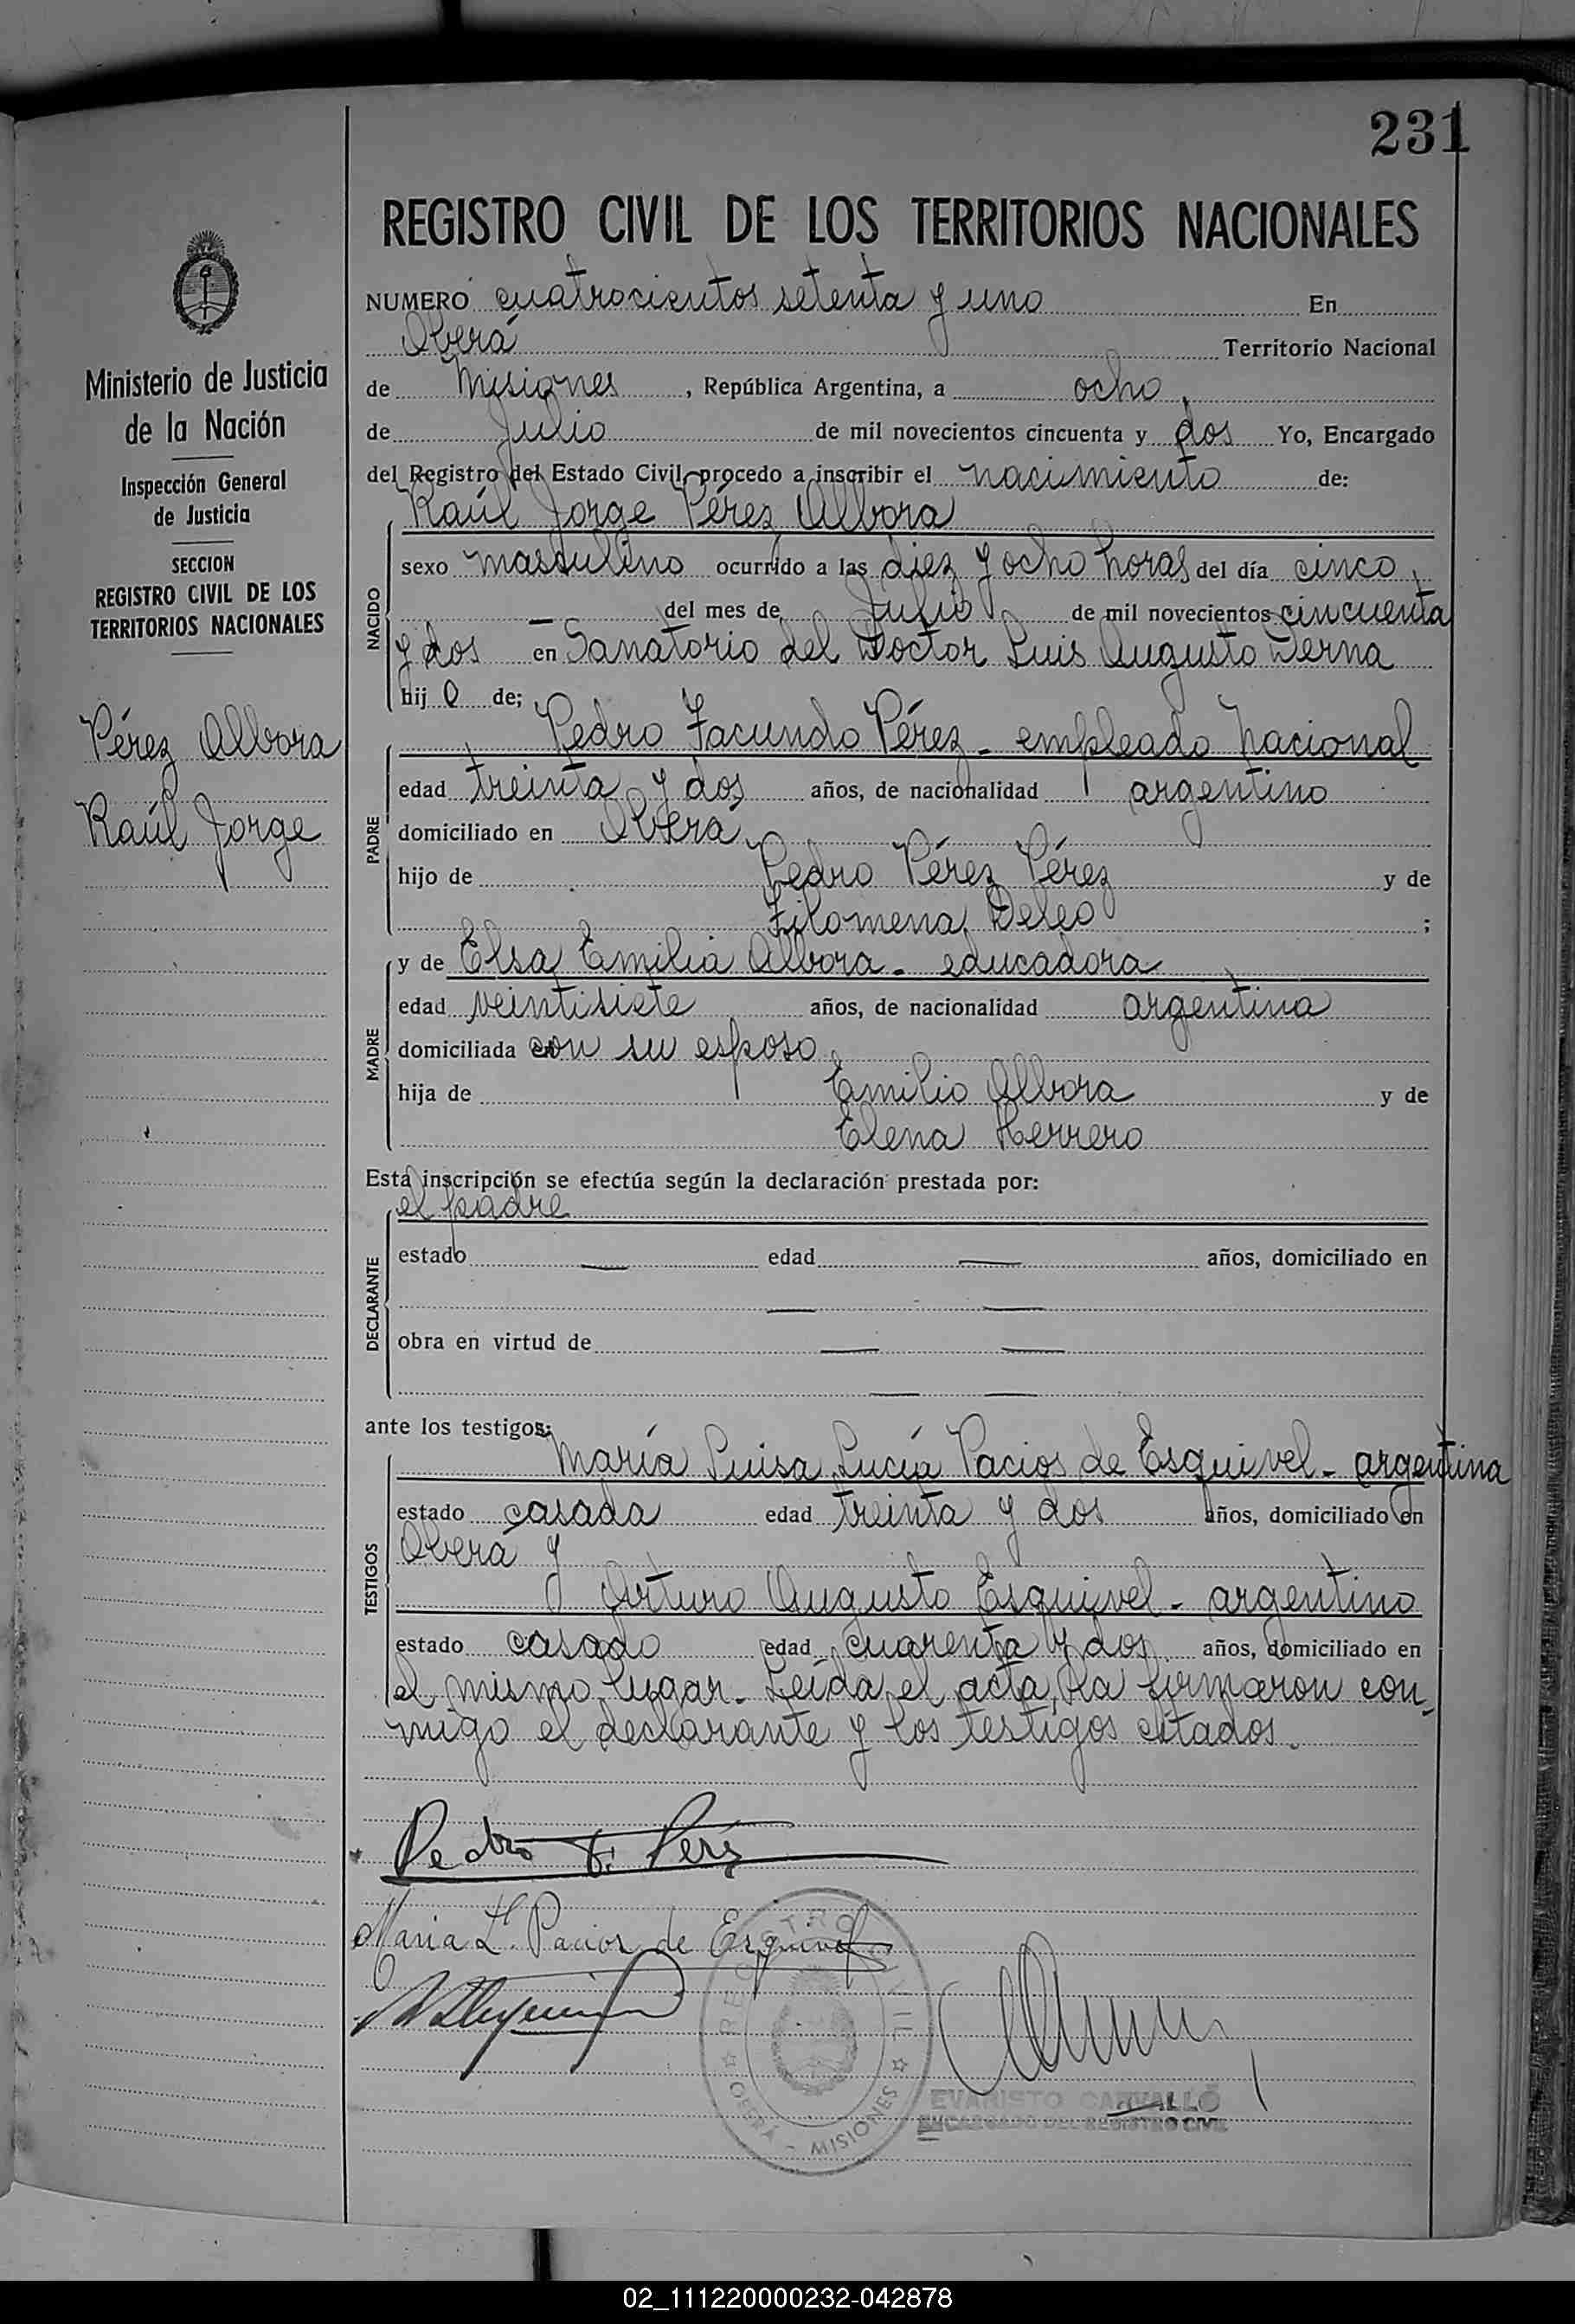 231
REGISTRO CIVIL DE LOS TERRITORIOS NACIONALES
Ministerio de Justicia
de la Nación
Inspección General
de Justicia
SECCION
REGISTRO CIVIL DE LOS
TERRITORIOS NACIONALES
Pérez Albora
Raúl Jorge
NUMERO cuatrocientos setenta y uno En
Oberá Territorio Nacional
de Misiones, República Argentina, a ocho,
de Julio de mil novecientos cincuenta y dos Yo, Encargado
del Registro del Estado Civil, procedo a inscribir el nacimiento de:
Raúl Jorge Pérez Albora
NACIDO
sexo masculino ocurrido a las diez y ocho horas del día cinco,
— del mes de Julio de mil novecientos cincuenta
y dos en Sanatorio del Doctor Luis Augusto Derna
hij o de;
Pedro Facundo Pérez - empleado nacional
PADRE
edad treinta y dos años, de nacionalidad argentino
domiciliado en Oberá,
hijo de Pedro Pérez Pérez y de
Filomena Deleo ;
MADRE
y de Elsa Emilia Albora - educadora
edad veintisiete años, de nacionalidad argentina
domiciliada con su esposo,
hija de Emilio Albora y de
Elena Herrero
Esta inscripción se efectúa según la declaración prestada por:
el padre
DECLARANTE
estado — edad — años, domiciliado en
— —
obra en virtud de — —
— —
ante los testigos:
María Luisa Lucía Pacios de Esquivel - argentina
TESTIGOS
estado casada edad treinta y dos años, domiciliado en
Oberá y
Arturo Augusto Esquivel - argentino
estado casado edad cuarenta y dos años, domiciliado en
el mismo lugar. Leída el acta, la firmaron con-
migo el declarante y los testigos citados.
Pedro F. Pérez
Maria L. L. Pacios de Esquivel
REGISTRO CIVIL
OBERA - MISIONES
EVARISTO CARVALLO
ENCARGADO DEL REGISTRO CIVIL
02_111220000232-042878